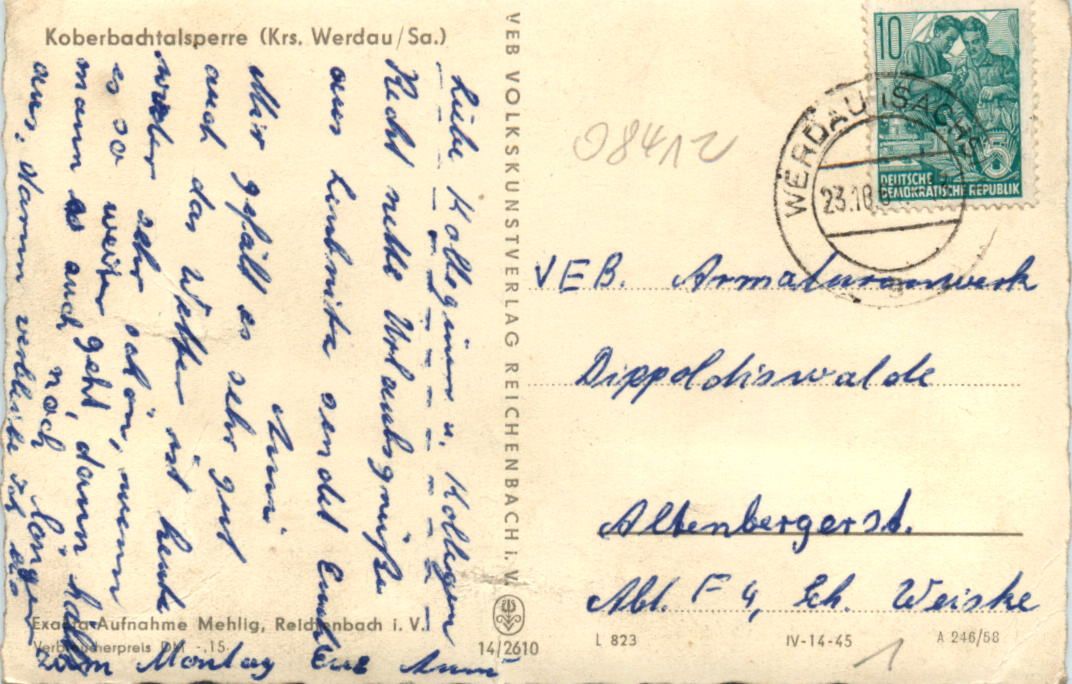 Koberbachtalsperre (Krs. Werdau/Sa.)
Liebe Kolleginnen u. Kollegen
Recht nette Urlaubsgrüße
aus Leubnitz sendet Euch
Anni
Mir gefällt es sehr gut
auch das Wetter ist heute
wieder sehr schön, wenn
es so weiter geht, dann hält
mann es auch noch länger
aus, darum verbleibe ich bis
zum Montag Eure Anni
Exakta-Aufnahme Mehlig, Reichenbach i. V.
Verbraucherpreis DM -.15
14/2610
VEB VOLKSKUNSTVERLAG REICHENBACH i. V.
08412
10
DEUTSCHE
DEMOKRATISCHE REPUBLIK
5
WERDAU (SACHS)
23.10.
VEB. Armaturenwerk
Dippoldiswalde
Altenbergerst.
Abt. F 4, Sch. Weiske
L 823
IV-14-45
A 246/58
1